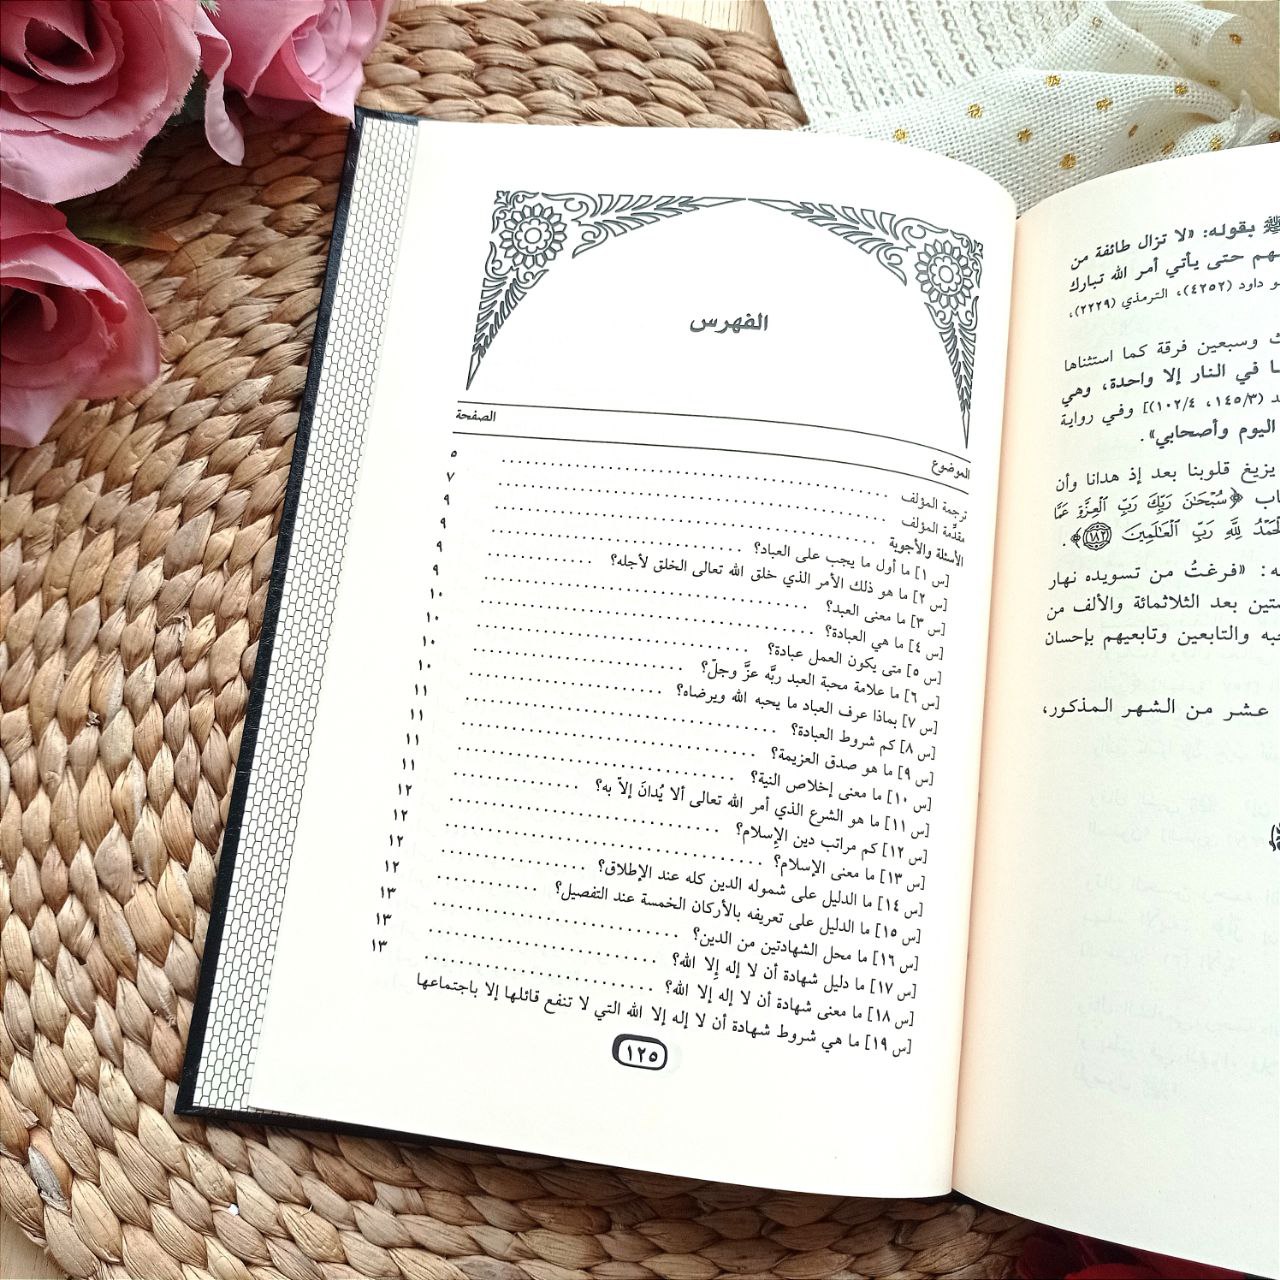 ﷺ بقوله: «لا تزال طائفة من
حتى يأتي أمر الله تبارك
داود (٤٢٥٢)، الترمذي (٢٢٢٩)،
وسبعين فرقة كما استثناها
في النار إلا واحدة، وهي
(١٤٥/٣، ١٠٢/٤)] وفي رواية
اليوم وأصحابي».
يزيغ قلوبنا بعد إذ هدانا وأن
﴿سُبْحَٰنَ رَبِّكَ رَبِّ ٱلْعِزَّةِ عَمَّا
لِلَّهِ رَبِّ ٱلْعَٰلَمِينَ ١٨٢﴾.
«فرغتُ من تسويده نهار
بعد الثلاثمائة والألف من
والتابعين وتابعيهم بإحسان
عشر من الشهر المذكور،
الفهرس
الموضوع الصفحة
ترجمة المؤلف ........ ٥
مقدِّمة المؤلف ........ ٧
الأسئلة والأجوبة ........ ٩
[س ١] ما أول ما يجب على العباد؟ ........ ٩
[س ٢] ما هو ذلك الأمر الذي خلق الله تعالى الخلق لأجله؟ ........ ٩
[س ٣] ما معنى العبد؟ ........ ٩
[س ٤] ما هي العبادة؟ ........ ١٠
[س ٥] متى يكون العمل عبادة؟ ........ ١٠
[س ٦] ما علامة محبة العبد ربَّه عزَّ وجلّ؟ ........ ١٠
[س ٧] بماذا عرف العباد ما يحبه الله ويرضاه؟ ........ ١٠
[س ٨] كم شروط العبادة؟ ........ ١١
[س ٩] ما هو صدق العزيمة؟ ........ ١١
[س ١٠] ما معنى إخلاص النية؟ ........ ١١
[س ١١] ما هو الشرع الذي أمر الله تعالى ألا يُدانَ إلاّ به؟ ........ ١١
[س ١٢] كم مراتب دين الإِسلام؟ ........ ١٢
[س ١٣] ما معنى الإسلام؟ ........ ١٢
[س ١٤] ما الدليل على شموله الدين كله عند الإطلاق؟ ........ ١٢
[س ١٥] ما الدليل على تعريفه بالأركان الخمسة عند التفصيل؟ ........ ١٢
[س ١٦] ما محل الشهادتين من الدين؟ ........ ١٣
[س ١٧] ما دليل شهادة أن لا إله إلا الله؟ ........ ١٣
[س ١٨] ما معنى شهادة أن لا إله إلا الله؟ ........ ١٣
[س ١٩] ما هي شروط شهادة أن لا إله إلا الله التي لا تنفع قائلها إلا باجتماعها
١٢٥